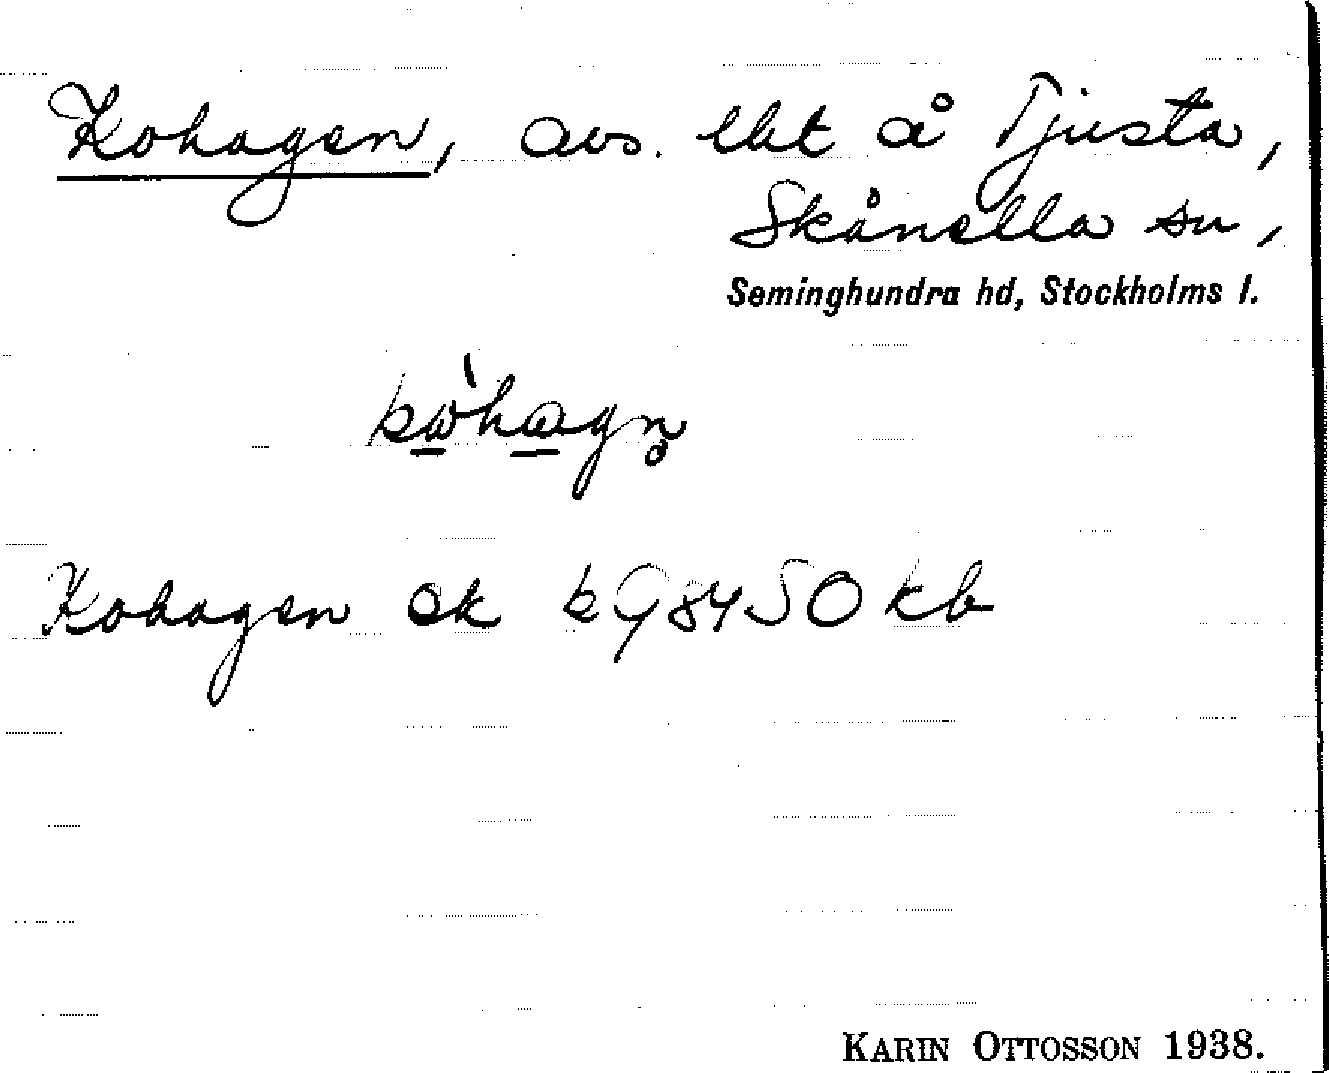 Kohagen, avs. lht å Tjusta,
Skånella sn,
Seminghundra hd, Stockholms l.
Kohagen ek k 98450 kb
KARIN OTTOSSON 1938.